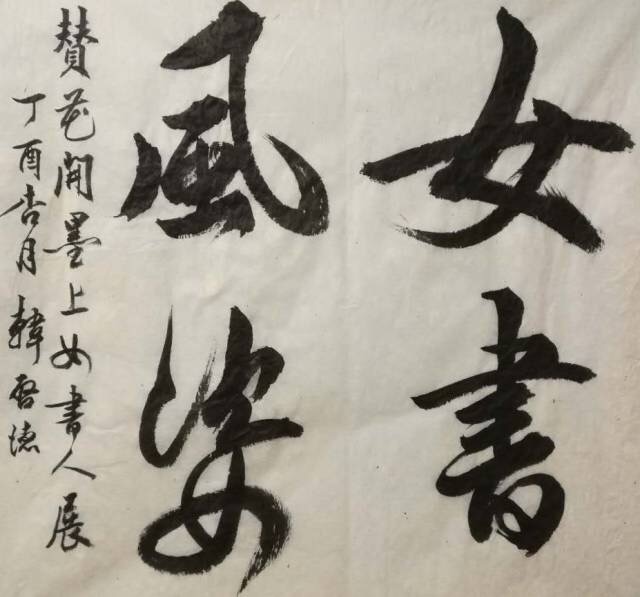 女書
風姿
賛花開墨上女書人展
丁酉杏月韓啓德